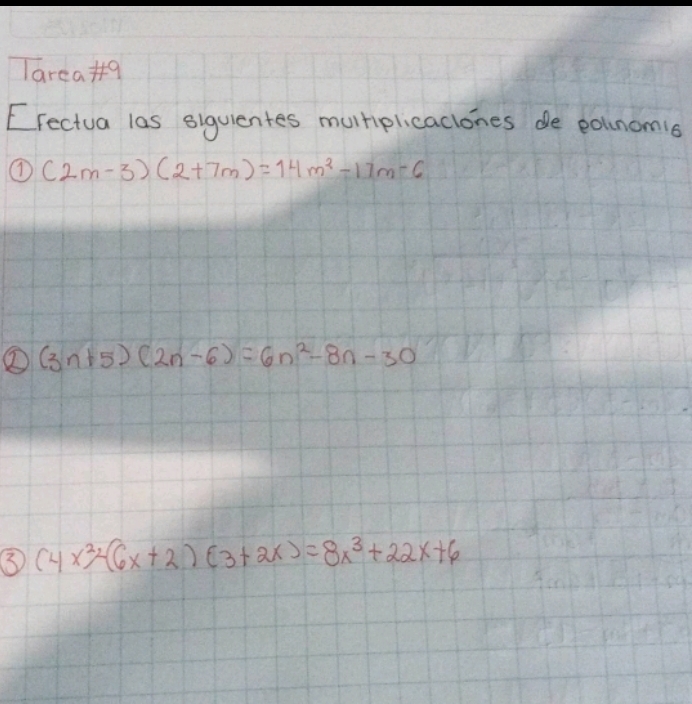 Tarea #9
Efectua las siguientes multiplicaciónes de polinomis
① (2m-3)(2+7m)=14m²-17m-6
② (3n+5)(2n-6)=6n²-8n-30
③ (4x²-(6x+2)(3+2x)=8x³+22x+6